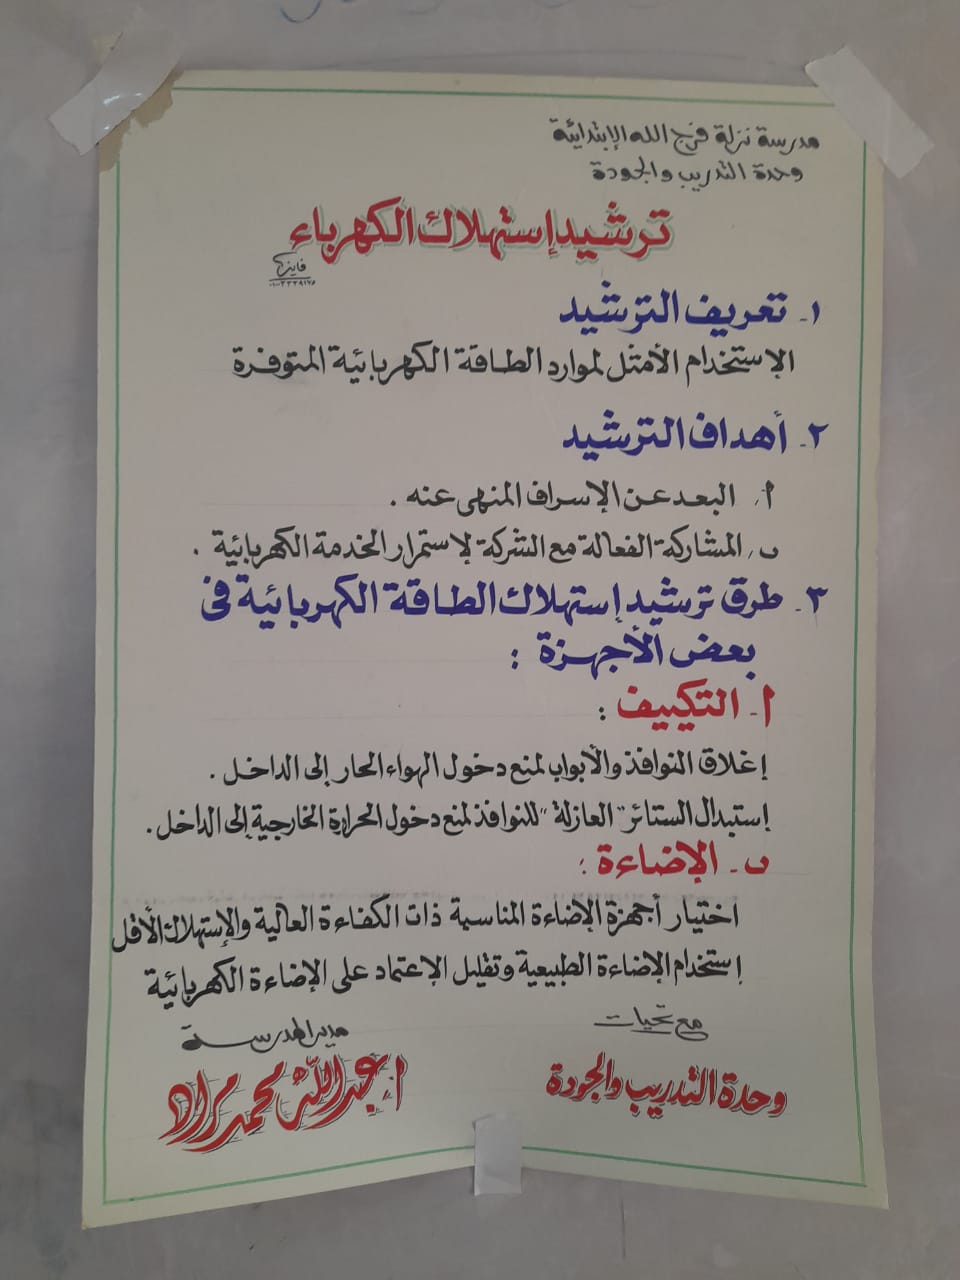 مدرسة نزلة فرج الله الإبتدائية
وحدة التدريب والجودة
ترشيد إستهلاك الكهرباء
فايز
١- تعريف الترشيد
الإستخدام الأمثل لموارد الطاقة الكهربائية المتوفرة
٢- أهداف الترشيد
أ, البعد عن الإسراف المنهى عنه .
ب, المشاركة الفعالة مع الشركة لإستمرار الخدمة الكهربائية .
٣- طرق ترشيد إستهلاك الطاقة الكهربائية فى
بعض الأجهزة :
أ- التكييف :
إغلاق النوافذ والأبواب لمنع دخول الهواء الحار إلى الداخل .
إستبدال الستائر "العازلة" للنوافذ لمنع دخول الحرارة الخارجية إلى الداخل .
ب- الإضاءة :
اختيار أجهزة الإضاءة المناسبة ذات الكفاءة العالية والإستهلاك الأقل
إستخدام الإضاءة الطبيعية وتقليل الإعتماد على الإضاءة الكهربائية
مع تحيات
وحدة التدريب والجودة
مدير المدرسة
أ. عبدالله محمد مراد